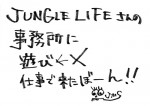 JUNGLE LIFEさんの
事務所に
遊び←×
仕事で来たばーん!!